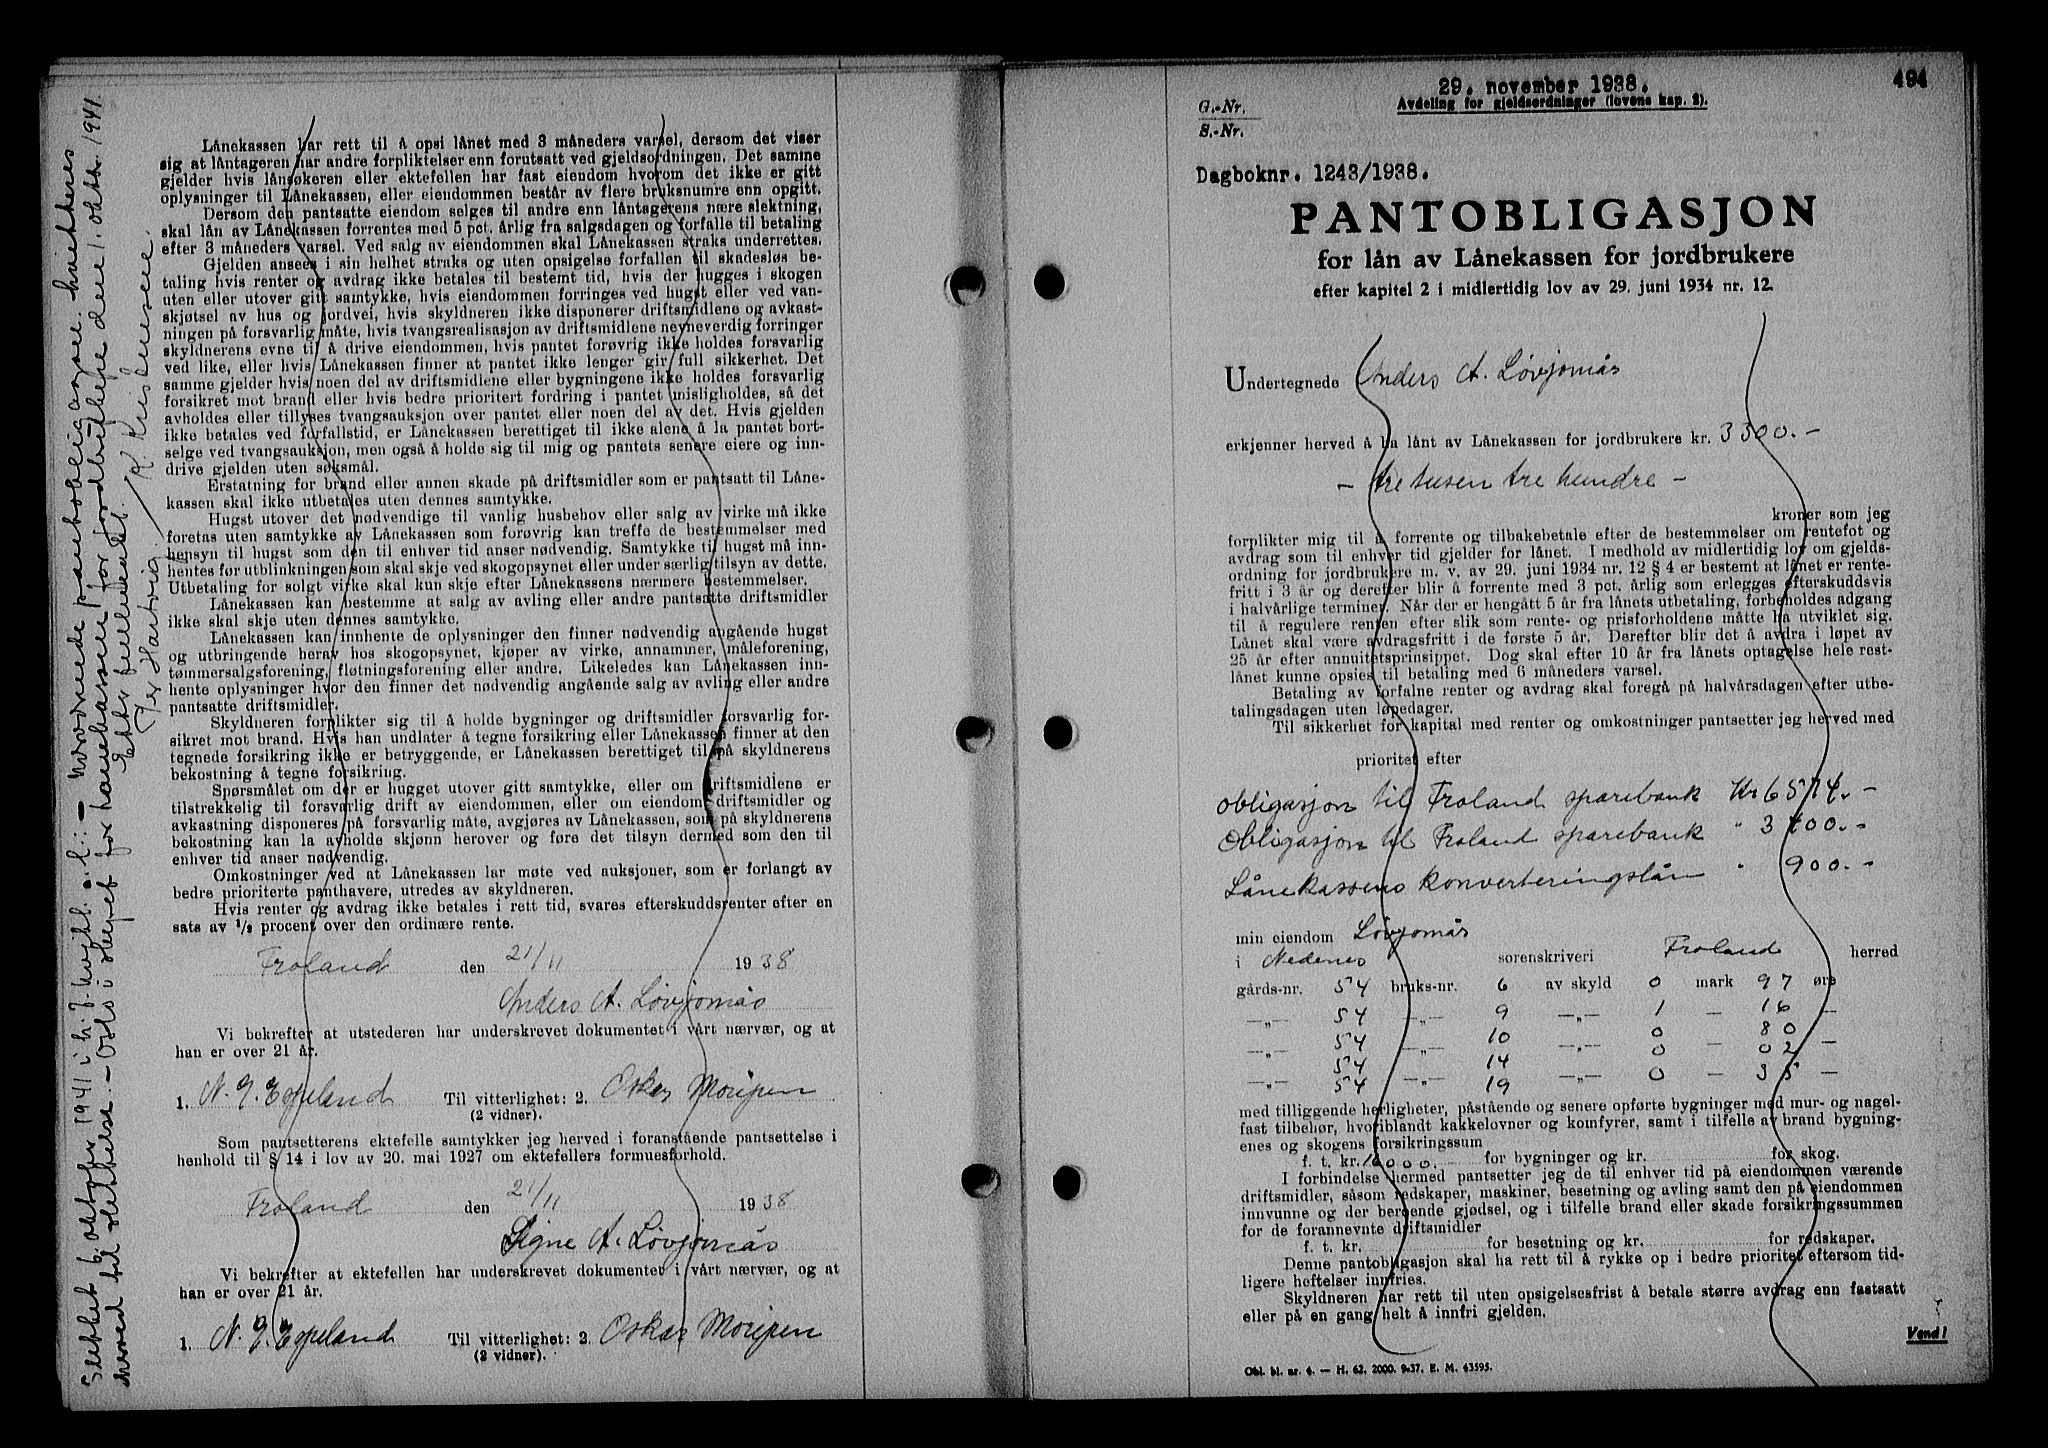 Lånekassen har rett til å opsi lånet med 3 måneders varsel, dersom det viser
sig at låntageren har andre forpliktelser enn forutsatt ved gjeldsordningen. Det samme
gjelder hvis lånsøkeren eller ektefellen har fast eiendom hvorom det ikke er gitt
oplysninger til Lånekassen, eller eiendommen består av flere bruksnumre enn opgitt.
Dersom den pantsatte eiendom selges til andre enn låntagerens nære slektning,
skal lån av Lånekassen forrentes med 5 pct. årlig fra salgsdagen og forfalle til betaling
efter 3 måneders varsel. Ved salg av eiendommen skal Lånekassen straks underrettes.
Gjelden ansees i sin helhet straks og uten opsigelse forfallen til skadesløs be-
taling hvis renter og avdrag ikke betales til bestemt tid, hvis der hugges i skogen
uten eller utover gitt samtykke, hvis eiendommen forringes ved hugst eller ved van-
skjøtsel av hus og jordvei, hvis skyldneren ikke disponerer driftsmidlene og avkast-
ningen på forsvarlig måte, hvis tvangsrealisasjon av driftsmidlene nevneverdig forringer
skyldnerens evne til å drive eiendommen, hvis pantet forøvrig ikke holdes forsvarlig
ved like, eller hvis Lånekassen finner at pantet ikke lenger gir full sikkerhet. Det
samme gjelder hvis noen del av driftsmidlene eller bygningene ikke holdes forsvarlig
forsikret mot brand eller hvis bedre prioritert fordring i pantet misligholdes, så det
avholdes eller tillyses tvangsauksjon over pantet eller noen del av det. Hvis gjelden
ikke betales ved forfallstid, er Lånekassen berettiget til ikke alene å la pantet bort-
selge ved tvangsauksjon, men også å holde sig til mig og pantets senere eiere og inn-
drive gjelden uten søksmål.
Erstatning for brand eller annen skade på driftsmidler som er pantsatt til Låne-
kassen skal ikke utbetales uten dennes samtykke.
Hugst utover det nødvendige til vanlig husbehov eller salg av virke må ikke
foretas uten samtykke av Lånekassen som forøvrig kan treffe de bestemmelser med
hensyn til hugst som den til enhver tid anser nødvendig. Samtykke til hugst må inn-
hentes før utblinkningen som skal skje ved skogopsynet eller under særlig tilsyn av dette.
Utbetaling for solgt virke skal kun skje efter Lånekassens nærmere bestemmelser.
Lånekassen kan bestemme at salg av avling eller andre pantsatte driftsmidler
ikke skal skje uten dennes samtykke.
Lånekassen kan innhente de oplysninger den finner nødvendig angående hugst
og utbringende herav hos skogopsynet, kjøper av virke, annammer, måleforening,
tømmersalgsforening, fløtningsforening eller andre. Likeledes kan Lånekassen inn-
hente oplysninger hvor den finner det nødvendig angående salg av avling eller andre
pantsatte driftsmidler.
Skyldneren forplikter sig til å holde bygninger og driftsmidler forsvarlig for-
sikret mot brand. Hvis han undlater å tegne forsikring eller Lånekassen finner at den
tegnede forsikring ikke er betryggende, er Lånekassen berettiget til på skyldnerens
bekostning å tegne forsikring.
Spørsmålet om der er hugget utover gitt samtykke, eller om driftsmidlene er
tilstrekkelig til forsvarlig drift av eiendommen, eller om eiendom driftsmidler og
avkastning disponeres på forsvarlig måte, avgjøres av Lånekassen, som på skyldnerens
bekostning kan la avholde skjønn herover og føre det tilsyn dermed som den til
enhver tid anser nødvendig.
Omkostninger ved at Lånekassen lar møte ved auksjoner, som er forlangt av
bedre prioriterte panthavere, utredes av skyldneren.
Hvis renter og avdrag ikke betales i rett tid, svares efterskuddsrenter efter en
sats av 1/2 procent over den ordinære rente.
Froland den 21/11 1938
Anders A. Løvjomås
Vi bekrefter at utstederen har underskrevet dokumentet i vårt nærvær, og at
han er over 21 år.
1. N. J. Espeland Til vitterlighet: 2. Oskar Mørjen
(2 vidner).
Som pantsetterens ektefelle samtykker jeg herved i foranstående pantsettelse i
henhold til § 14 i lov av 20. mai 1927 om ektefellers formuesforhold.
Froland den 21/11 1938
Signe A. Løvjomås
Vi bekrefter at ektefellen har underskrevet dokumentet i vårt nærvær, og at
han er over 21 år.
1. N. J. Espeland Til vitterlighet: 2. Oskar Mørjen
(2 vidner).
Slettet 6. oktober 1941 i h. t. - Nærværende pantobligasjon kvitteres
herved til slettelse. - Oslo i styret for Lånekassen for jordbrukere den 1. oktbr. 1941.
Etter fullmakt.
Per Hartvig. / K. Kristensen.
29. november 1938.
494
Avdeling for gjeldsordninger (lovens kap. 2).
G.-Nr.
S.-Nr.
Dagboknr. 1243/1938.
PANTOBLIGASJON
for lån av Lånekassen for jordbrukere
efter kapitel 2 i midlertidig lov av 29. juni 1934 nr. 12.
Undertegnede Anders A. Løvjomås
erkjenner herved å ha lånt av Lånekassen for jordbrukere kr. 3300.-
- tre tusen tre hundre -
kroner som jeg
forplikter mig til å forrente og tilbakebetale efter de bestemmelser om rentefot og
avdrag som til enhver tid gjelder for lånet. I medhold av midlertidig lov om gjelds-
ordning for jordbrukere m. v. av 29. juni 1934 nr. 12 § 4 er bestemt at lånet er rente-
fritt i 3 år og derefter blir å forrente med 3 pct. årlig som erlegges efterskuddsvis
i halvårlige terminer. Når der er hengått 5 år fra lånets utbetaling, forbeholdes adgang
til å regulere renten efter slik som rente- og prisforholdene måtte ha utviklet sig.
Lånet skal være avdragsfritt i de første 5 år. Derefter blir det å avdra i løpet av
25 år efter annuitetsprinsippet. Dog skal efter 10 år fra lånets optagelse hele rest-
lånet kunne opsies til betaling med 6 måneders varsel.
Betaling av forfalne renter og avdrag skal foregå på halvårsdagen efter utbe-
talingsdagen uten løpedager.
Til sikkerhet for kapital med renter og omkostninger pantsetter jeg herved med
prioritet efter
obligasjon til Froland sparebank Kr 6574.-
Obligasjon til Froland sparebank " 3400.-
Lånekassens konverteringslån " 900.-
min eiendom Løvjomås
i Nedenes sorenskriveri Froland herred
gårds-nr. 54 bruks-nr. 6 av skyld 0 mark 97 øre
—„— 54 —„— 9 —„— 1 — 16 —
—„— 54 —„— 10 —„— 0 — 80 —
54 14 —„— 0 — 02 —
—„— 54 —„— 19 —„— 0 — 35 —
med tilliggende herligheter, påstående og senere opførte bygninger med mur- og nagel-
fast tilbehør, hvoriblandt kakkelovner og komfyrer, samt i tilfelle av brand bygning-
enes og skogens forsikringssum
f. t. kr. 16000.- for bygninger og kr. for skog.
I forbindelse hermed pantsetter jeg de til enhver tid på eiendommen værende
driftsmidler, såsom redskaper, maskiner, besetning og avling samt den på eiendommen
innvunne og der beroende gjødsel, og i tilfelle brand eller skade forsikringssummen
for de forannevnte driftsmidler
f. t. kr. for besetning og kr. for redskaper.
Denne pantobligasjon skal ha rett til å rykke op i bedre prioritet eftersom tid-
ligere heftelser innfries.
Skyldneren har rett til uten opsigelsesfrist å betale større avdrag enn fastsatt
eller på en gang helt å innfri gjelden.
Vend!
Obl. bl. nr. 4. — H. 62. 2000. 9-37. E. M. 43595.